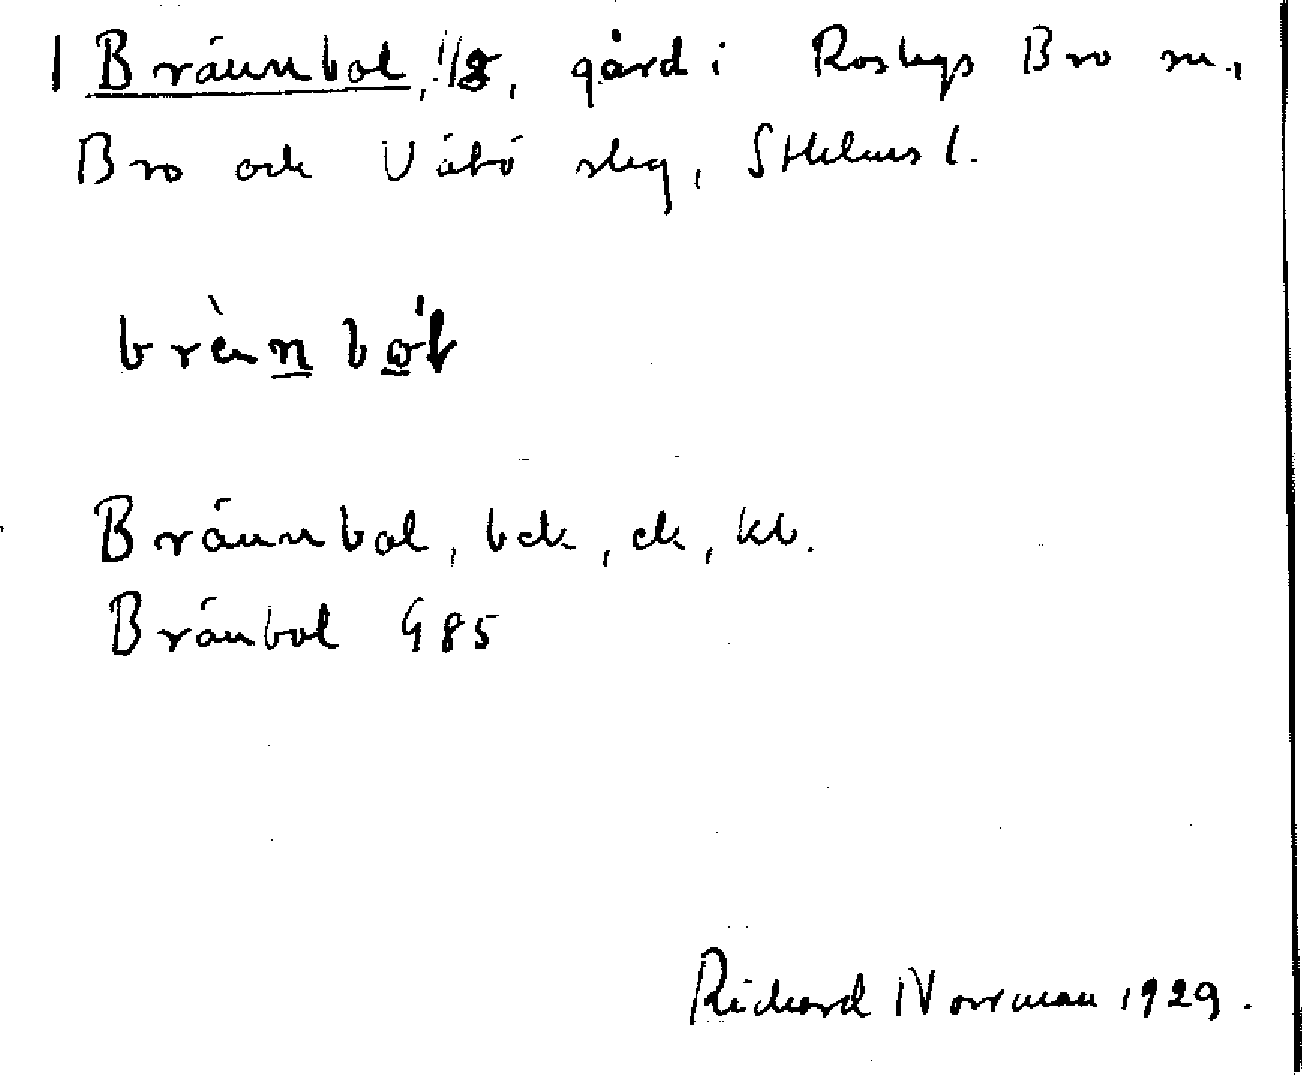 1 Brännbol, 1/2, gård i Roslags Bro sn.,
Bro och Vätö slag, Sthlms l.
brènnból
Brännbol, bck, ek, kb.
Bränbol G 85
Richard Norrman 1929.